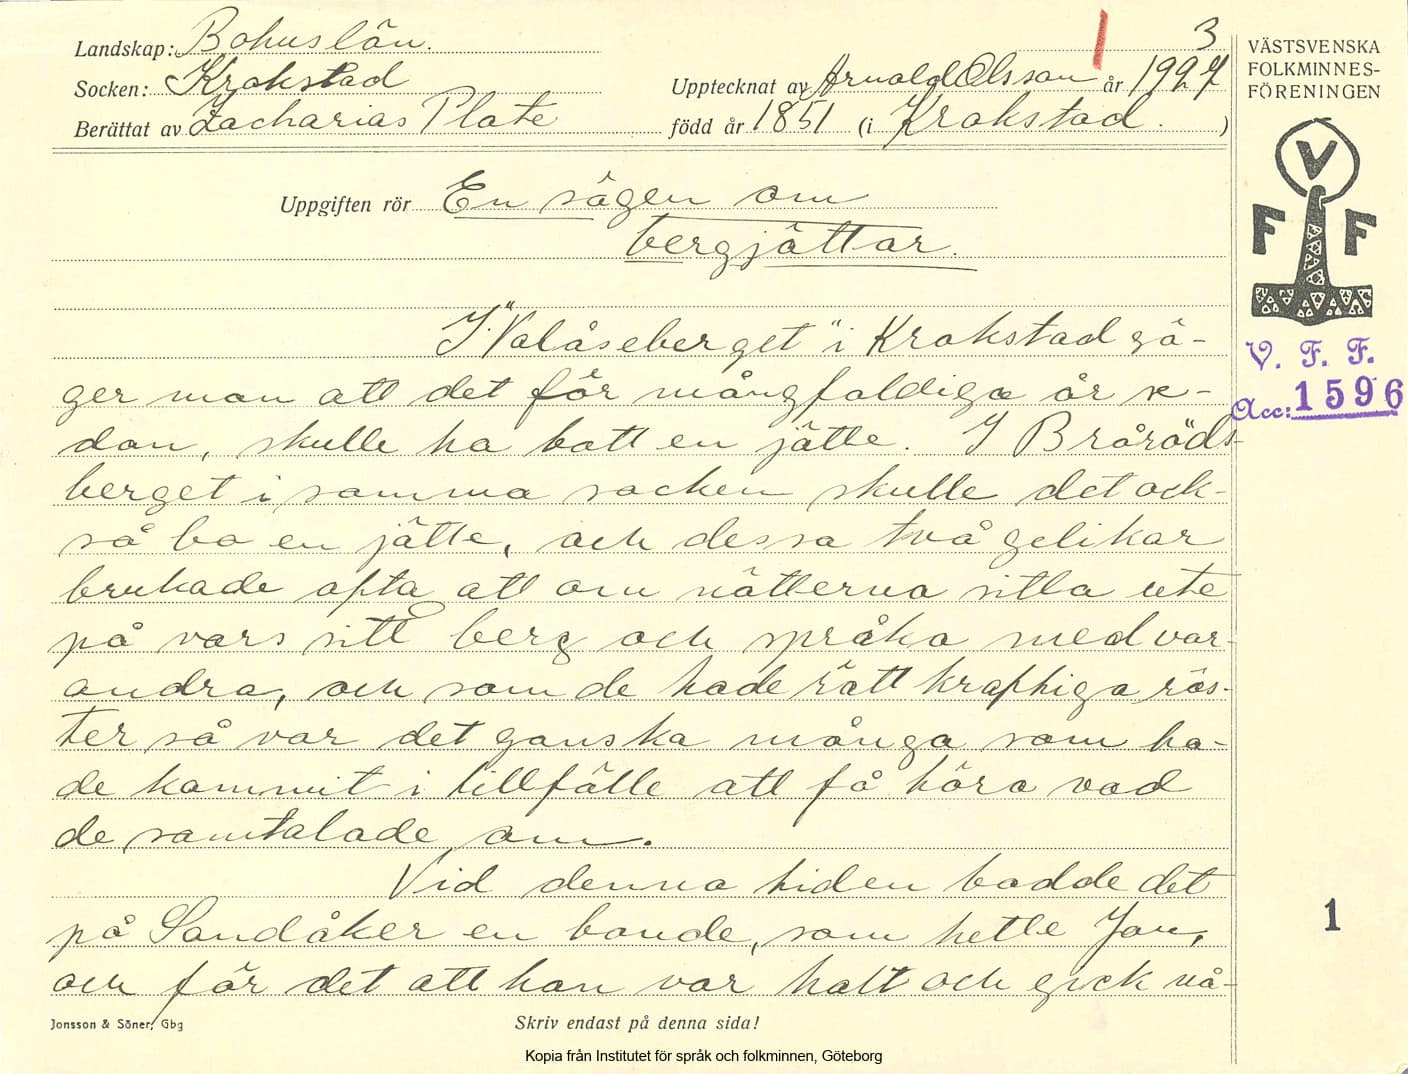 3
Landskap: Bohuslän.
Socken: Krokstad
Upptecknat av Arnold Olsson år 1927
Berättat av Zacharias Plate
född år 1851 (i Krokstad. )
Uppgiften rör En sägen om
bergjättar.
I "Valåseberget" i Krokstad sä-
ger man att det för mångfaldiga år se-
dan, skulle ha bott en jätte. I Bråröds-
berget i samma socken skulle det ock-
så bo en jätte, och dessa två gelikar
brukade ofta att om nätterna sitta ute
på vars sitt berg och språka med var-
andra, och som de hade rätt kraftiga rös-
ter så var det ganska många som ha-
de kommit i tillfälle att få höra vad
de samtalade om.
Vid denna tiden bodde det
på Sandåker en bonde, som hette Jon,
och för det att han var halt och gick nå-
Jonsson & Söner, Gbg
Skriv endast på denna sida!
VÄSTSVENSKA
FOLKMINNES-
FÖRENINGEN
V
F F
V. F. F.
Acc: 1596
1
Kopia från Institutet för språk och folkminnen, Göteborg